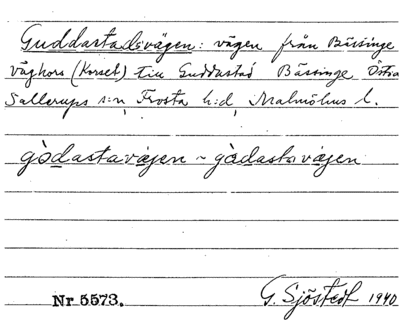 Guddastadsvägen: vägen från Bässinge
vägkors (Korset) till Guddastad Bässinge Östra
Sallerups s:n, Frosta h:d, Malmöhus l.
gòdastavägen ~ gàdastavägen
Nr 5573. G. Sjöstedt 1940